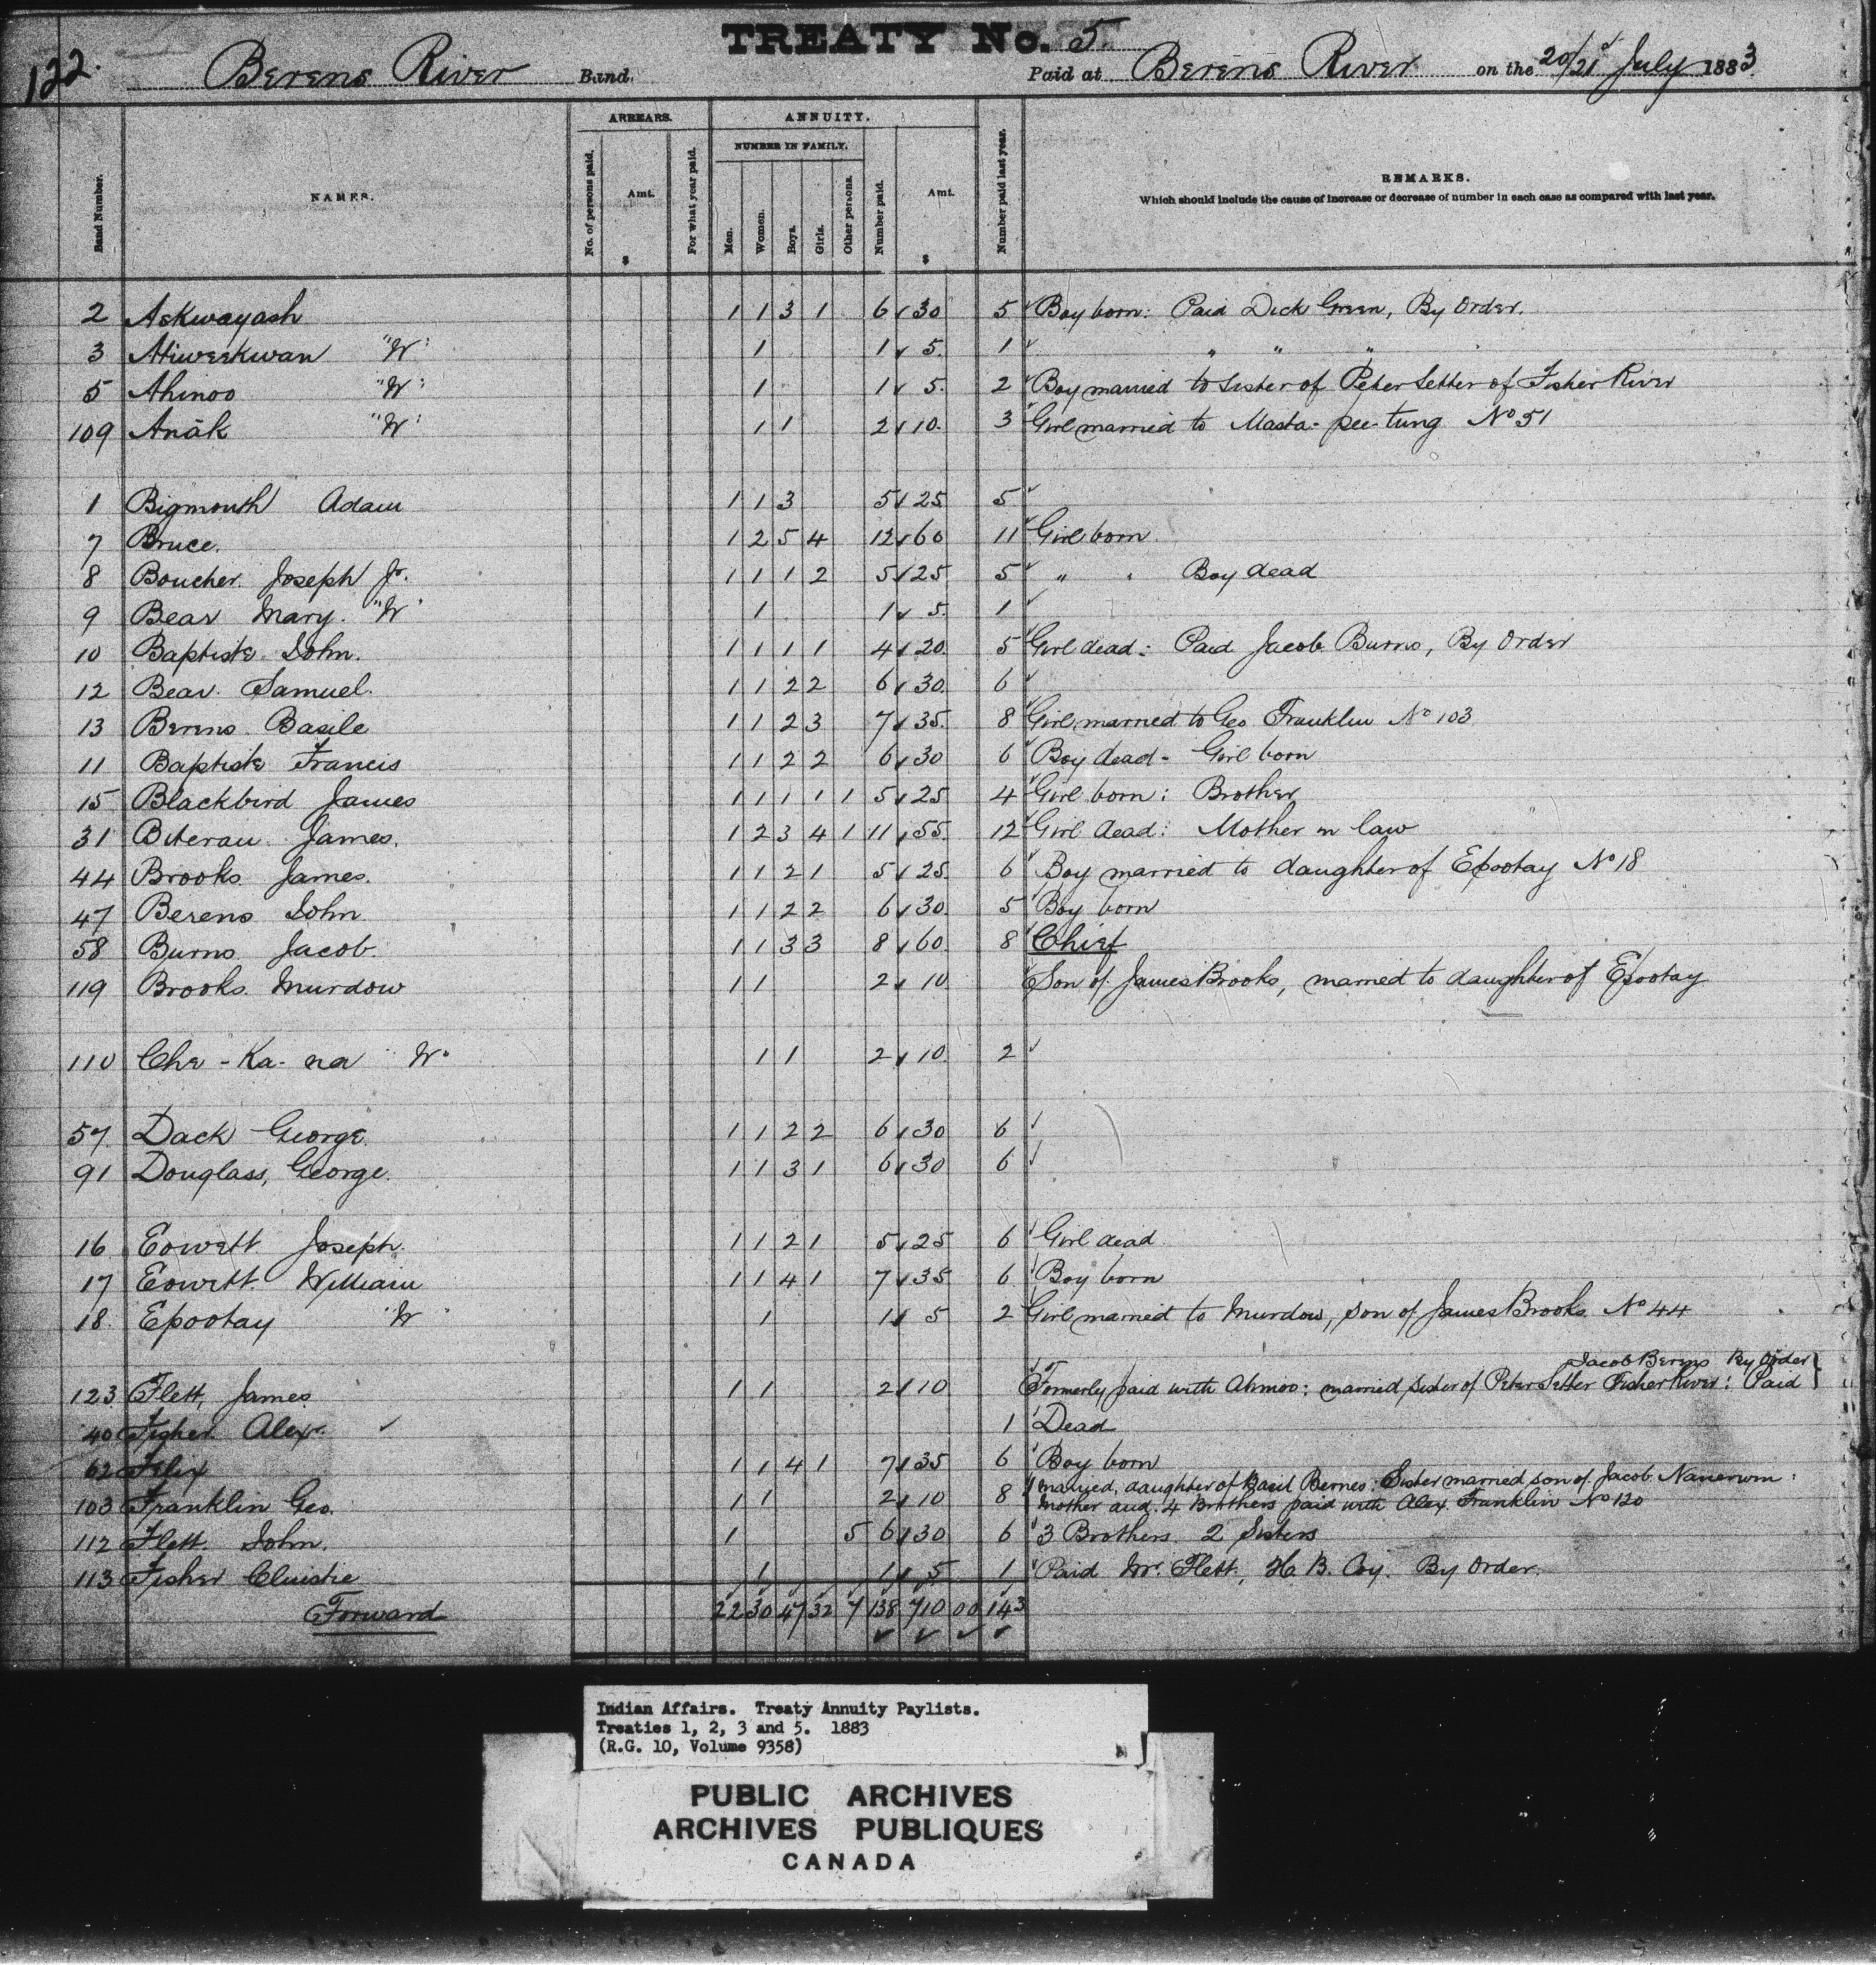 TREATY No. 5.
122. Berens River Band. Paid at Berens River on the 20/21st July 1883
ARREARS. ANNUITY.
NUMBER IN FAMILY.
Band Number. NAMES. No. of persons paid. Amt. $ For what year paid. Men. Women. Boys. Girls. Other persons. Number paid. Amt. $ Number paid last year. REMARKS.
Which should include the cause of increase or decrease of number in each case as compared with last year.
2 Askwayash 1 1 3 1 6 30 5 Boy born: Paid Dick Green, By Order.
3 Atiweekwan "W" 1 1 5. 1 " " "
5 Ahinoo "W" 1 1 5. 2 Boy married to sister of Peter Setter of Fisher River
109 Anāk "W" 1 1 2 10. 3 Girl married to Masta-pee-tung No 51
1 Bigmouth Adam 1 1 3 5 25 5
7 Bruce. 1 2 5 4 12 60 11 Girl born
8 Boucher. Joseph Jr. 1 1 1 2 5 25 5 " " Boy dead
9 Bear Mary. "W" 1 1 5. 1
10 Baptiste. John. 1 1 1 1 4 20. 5 Girl dead: Paid Jacob Burns, By Order
12 Bear. Samuel. 1 1 2 2 6 30. 6
13 Berens. Basile 1 1 2 3 7 35. 8 Girl married to Geo Franklin No 103
11 Baptiste Francis 1 1 2 2 6 30 6 Boy dead - Girl born
15 Blackbird James 1 1 1 1 1 5 25 4 Girl born: Brother
31 Biterau James. 1 2 3 4 1 11 55. 12 Girl dead: Mother in law
44 Brooks James. 1 1 2 1 5 25 6 Boy married to daughter of Epootay No 18
47 Berens John 1 1 2 2 6 30. 5 Boy born
58 Burns Jacob. 1 1 3 3 8 60. 8 Chief
119 Brooks. Murdow 1 1 2 10 Son of James Brooks, married to daughter of Epootay
110 Che-Ka-na "W" 1 1 2 10. 2
57. Dack George. 1 1 2 2 6 30 6
91 Douglass, George. 1 1 3 1 6 30 6
16 Eowett Joseph. 1 1 2 1 5 25 6 Girl dead
17 Eowett. William 1 1 4 1 7 35 6 Boy born
18. Epootay "W" 1 1 5 2 Girl married to Murdow, son of James Brooks No 44
Jacob Berens By Order
123 Flett, James. 1 1 2 10 Formerly paid with Ahinoo: married sister of Peter Setter Fisher River: Paid
40 Fisher Alex. 1 Dead
62 Felix 1 1 4 1 7 35 6 Boy born
103 Franklin Geo. 1 1 2 10 8 married, daughter of Basil Bernes: Sister married son of Jacob Nanewin:
Mother and 4 Brothers paid with Alex. Franklin No 120
112 Flett. John. 1 5 6 30 6 3 Brothers 2 Sisters
113 Fisher Christie 1 1 5 1 Paid Mr. Flett, H. B. Coy. By Order.
Forward 22 30 47 32 7 138 710 00 143
Indian Affairs. Treaty Annuity Paylists.
Treaties 1, 2, 3 and 5. 1883
(R.G. 10, Volume 9358)
PUBLIC ARCHIVES
ARCHIVES PUBLIQUES
CANADA